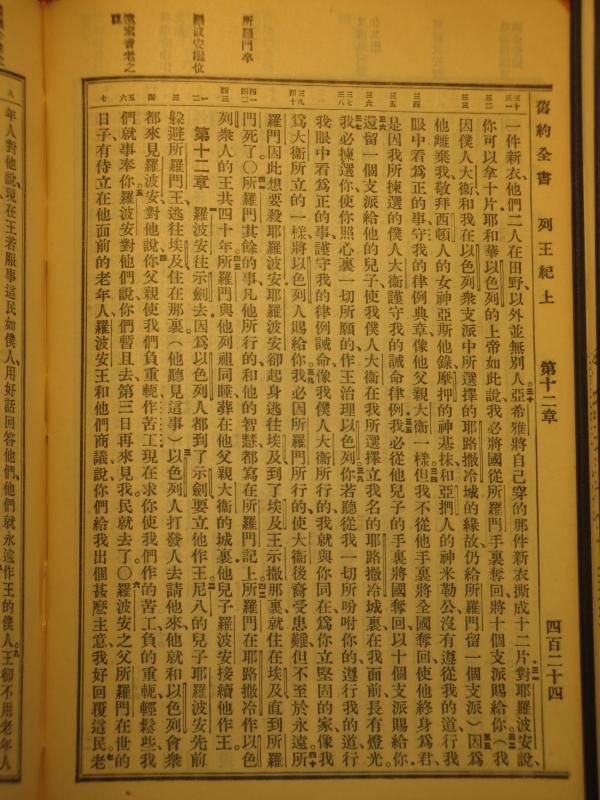 舊約全書 列王紀上 第十二章 四百二十四
一件新衣他們二人在田野以外並無別人亞希雅將自己穿的那件新衣撕成十二片對耶羅波安說
你可以拿十片耶和華以色列的上帝如此說我必將國從所羅門手裏奪回將十個支派賜給你(我
因僕人大衞和我在以色列衆支派中所選擇的耶路撒冷城的緣故仍給所羅門留一個支派)因爲
他離棄我敬拜西頓人的女神亞斯他錄摩押的神基抹和亞捫人的神米勒公沒有遵從我的道行我
眼中看爲正的事守我的律例典章像他父親大衞一樣但我不從他手裏將全國奪回使他終身爲君
是因我所揀選的僕人大衞謹守我的誡命律例我必從他兒子的手裏將國奪回以十個支派賜給你
還留一個支派給他的兒子使我僕人大衞在我所選擇立我名的耶路撒冷城裏在我面前長有燈光
我必揀選你使你照心裏一切所願的作王治理以色列你若聽從我一切所吩咐你的遵行我的道行
我眼中看爲正的事謹守我的律例誡命像我僕人大衞所行的我就與你同在爲你立堅固的家像我
爲大衞所立的一樣將以色列人賜給你我必因所羅門所行的使大衞後裔受患難但不至於永遠所
羅門因此想要殺耶羅波安耶羅波安卻起身逃往埃及到了埃及王示撒那裏就住在埃及直到所羅
門死了○所羅門其餘的事凡他所行的和他的智慧都寫在所羅門記上所羅門在耶路撒冷作以色
列衆人的王共四十年所羅門與他列祖同睡葬在他父親大衞的城裏他兒子羅波安接續他作王
第十二章 羅波安往示劍去因爲以色列人都到了示劍要立他作王尼八的兒子耶羅波安先前
躲避所羅門王逃往埃及住在那裏(他聽見這事)以色列人打發人去請他來他就和以色列會衆
都來見羅波安對他說你父親使我們負重軛作苦工現在求你使我們作的苦工負的重軛輕鬆些我
們就事奉你羅波安對他們說你們暫且去第三日再來見我民就去了○羅波安之父所羅門在世的
日子有侍立在他面前的老年人羅波安王和他們商議說你們給我出個甚麼主意我好回覆這民老
所羅門卒
羅波安繼位
年人對他說現在王若服事這民如僕人用好話回答他們他們就永遠作王的僕人王卻不用老年人